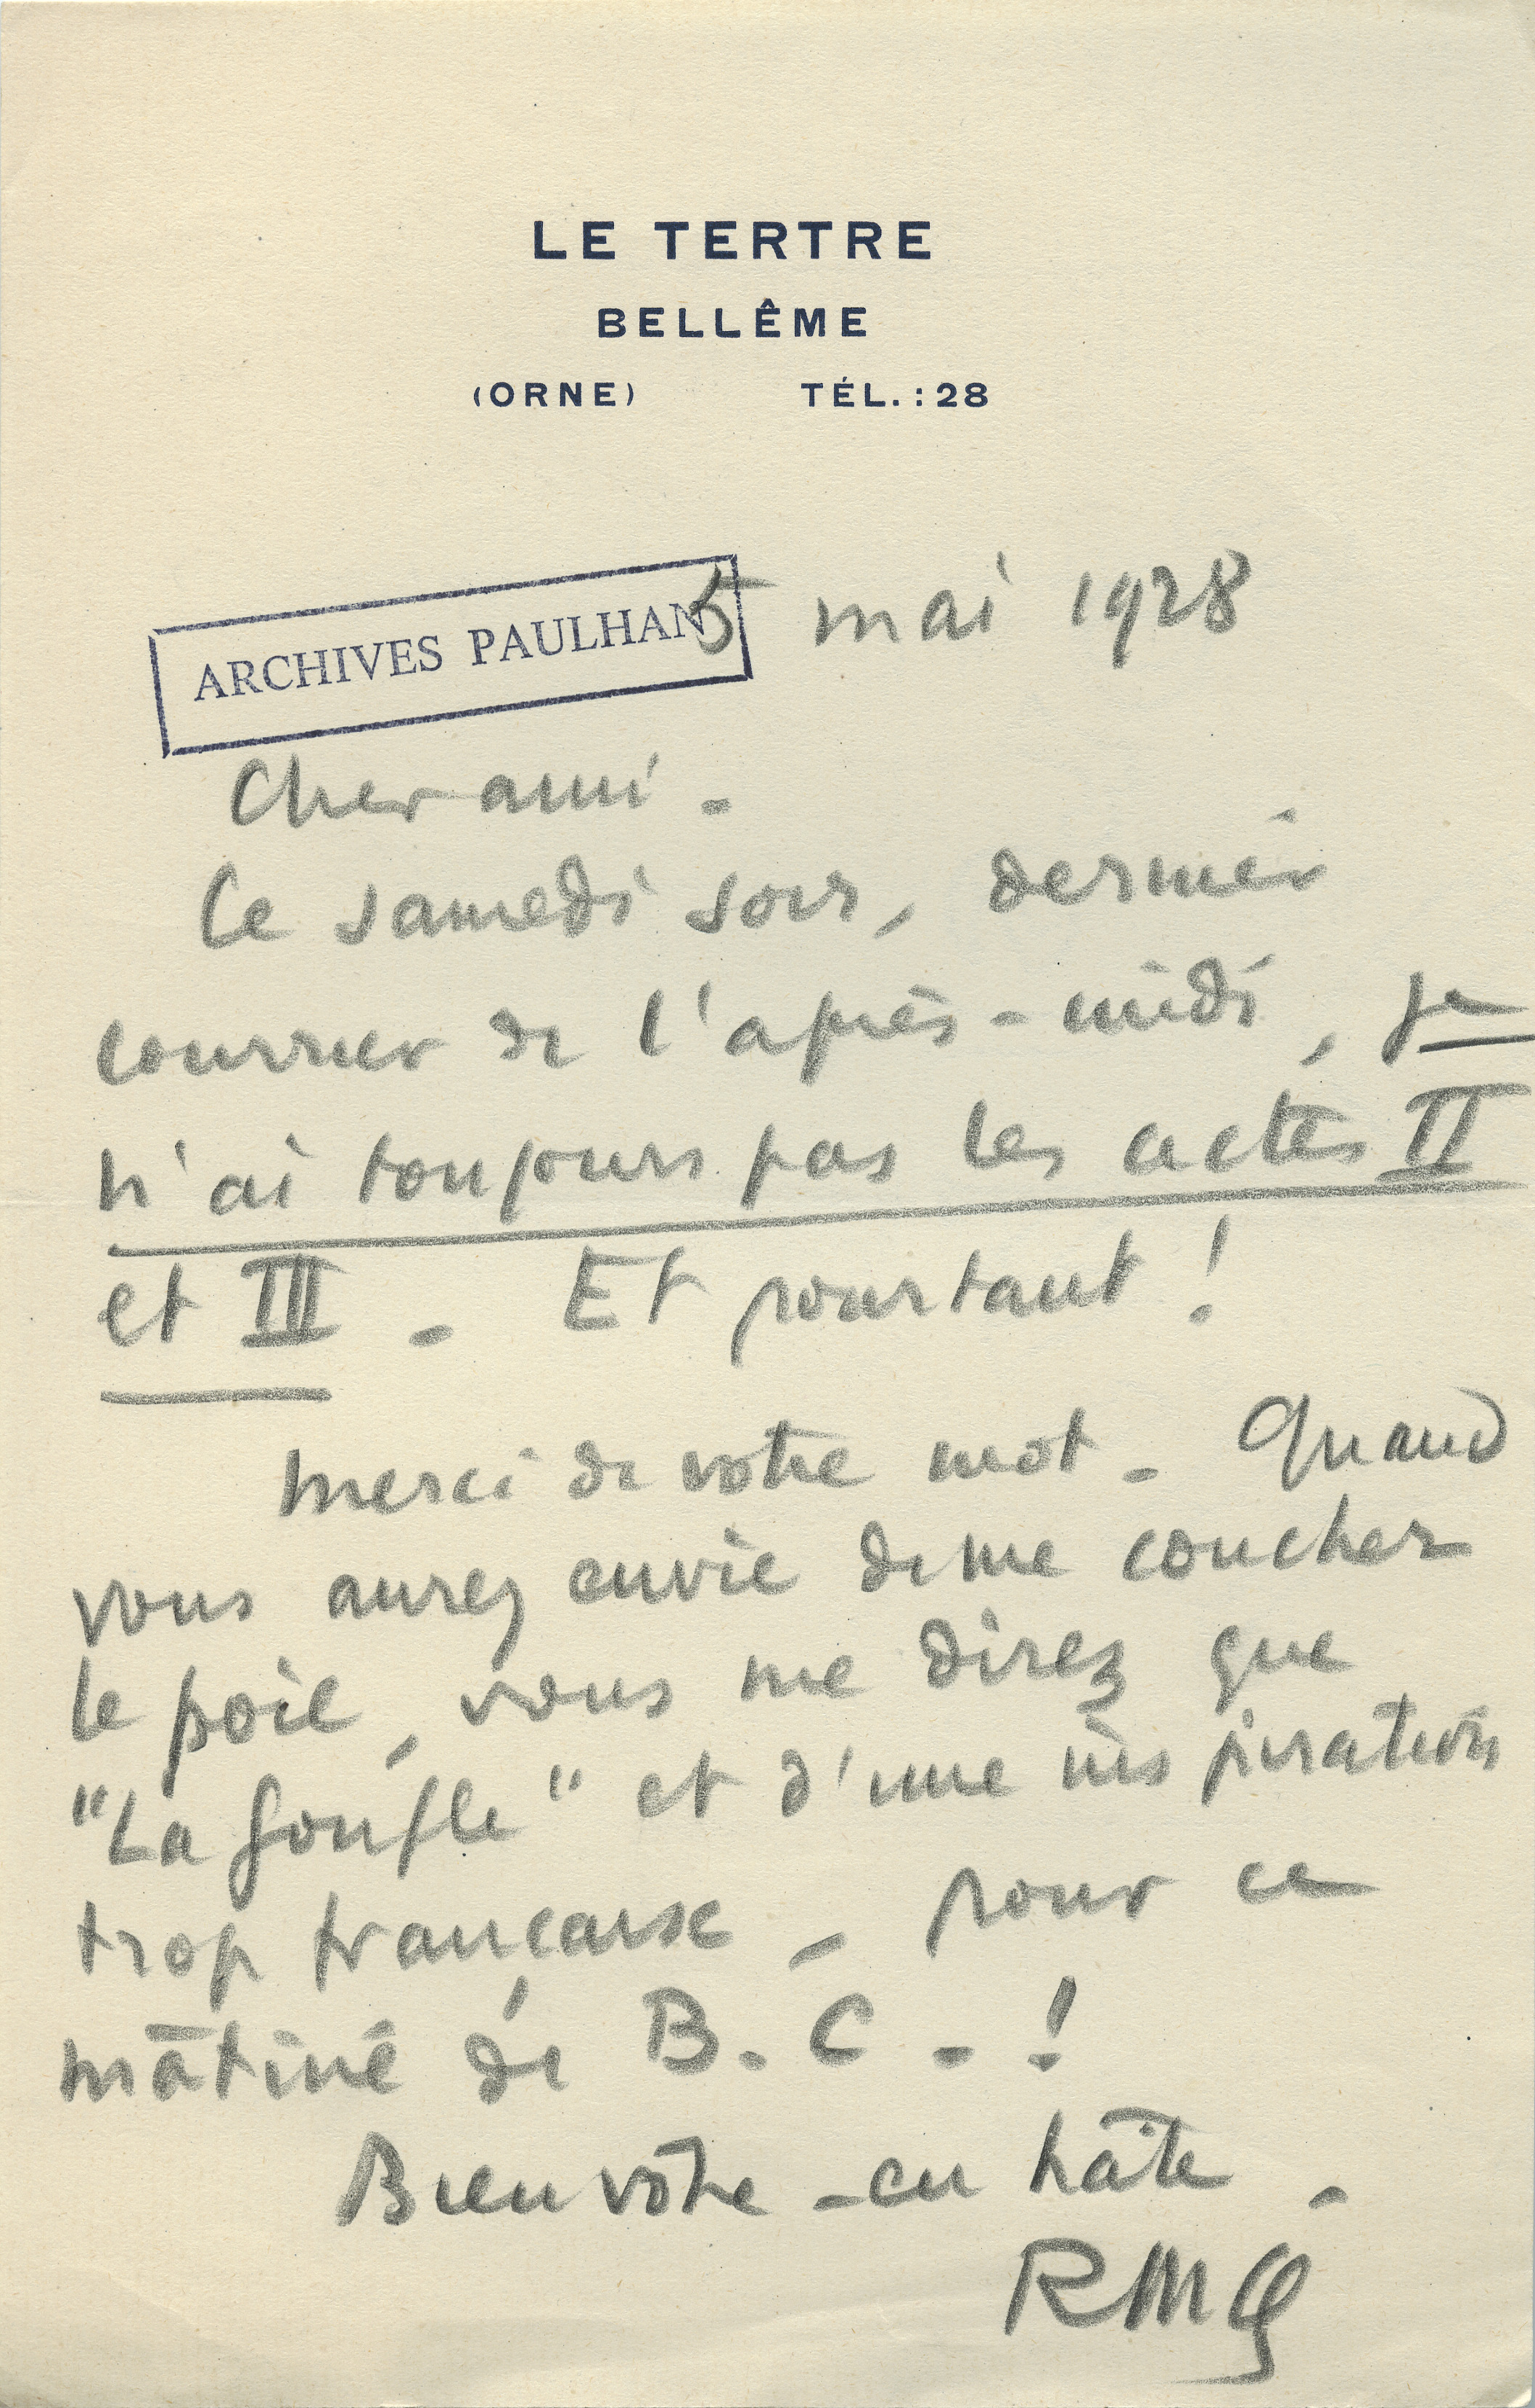 LE TERTRE
BELLÊME
(ORNE) TÉL. : 28
ARCHIVES PAULHAN
5 mai 1928
Cher ami.
Ce samedi soir, dernier
courrier de l'après-midi, je
n'ai toujours pas les actes II
et III. Et pourtant !
Merci de votre mot. Quand
vous aurez envie de me coucher
le poil, vous me direz que
"La Gonfle" et d'une inspiration
trop française, pour ce
mâtiné de B. C. !
Bien vôtre - en hâte.
RMG